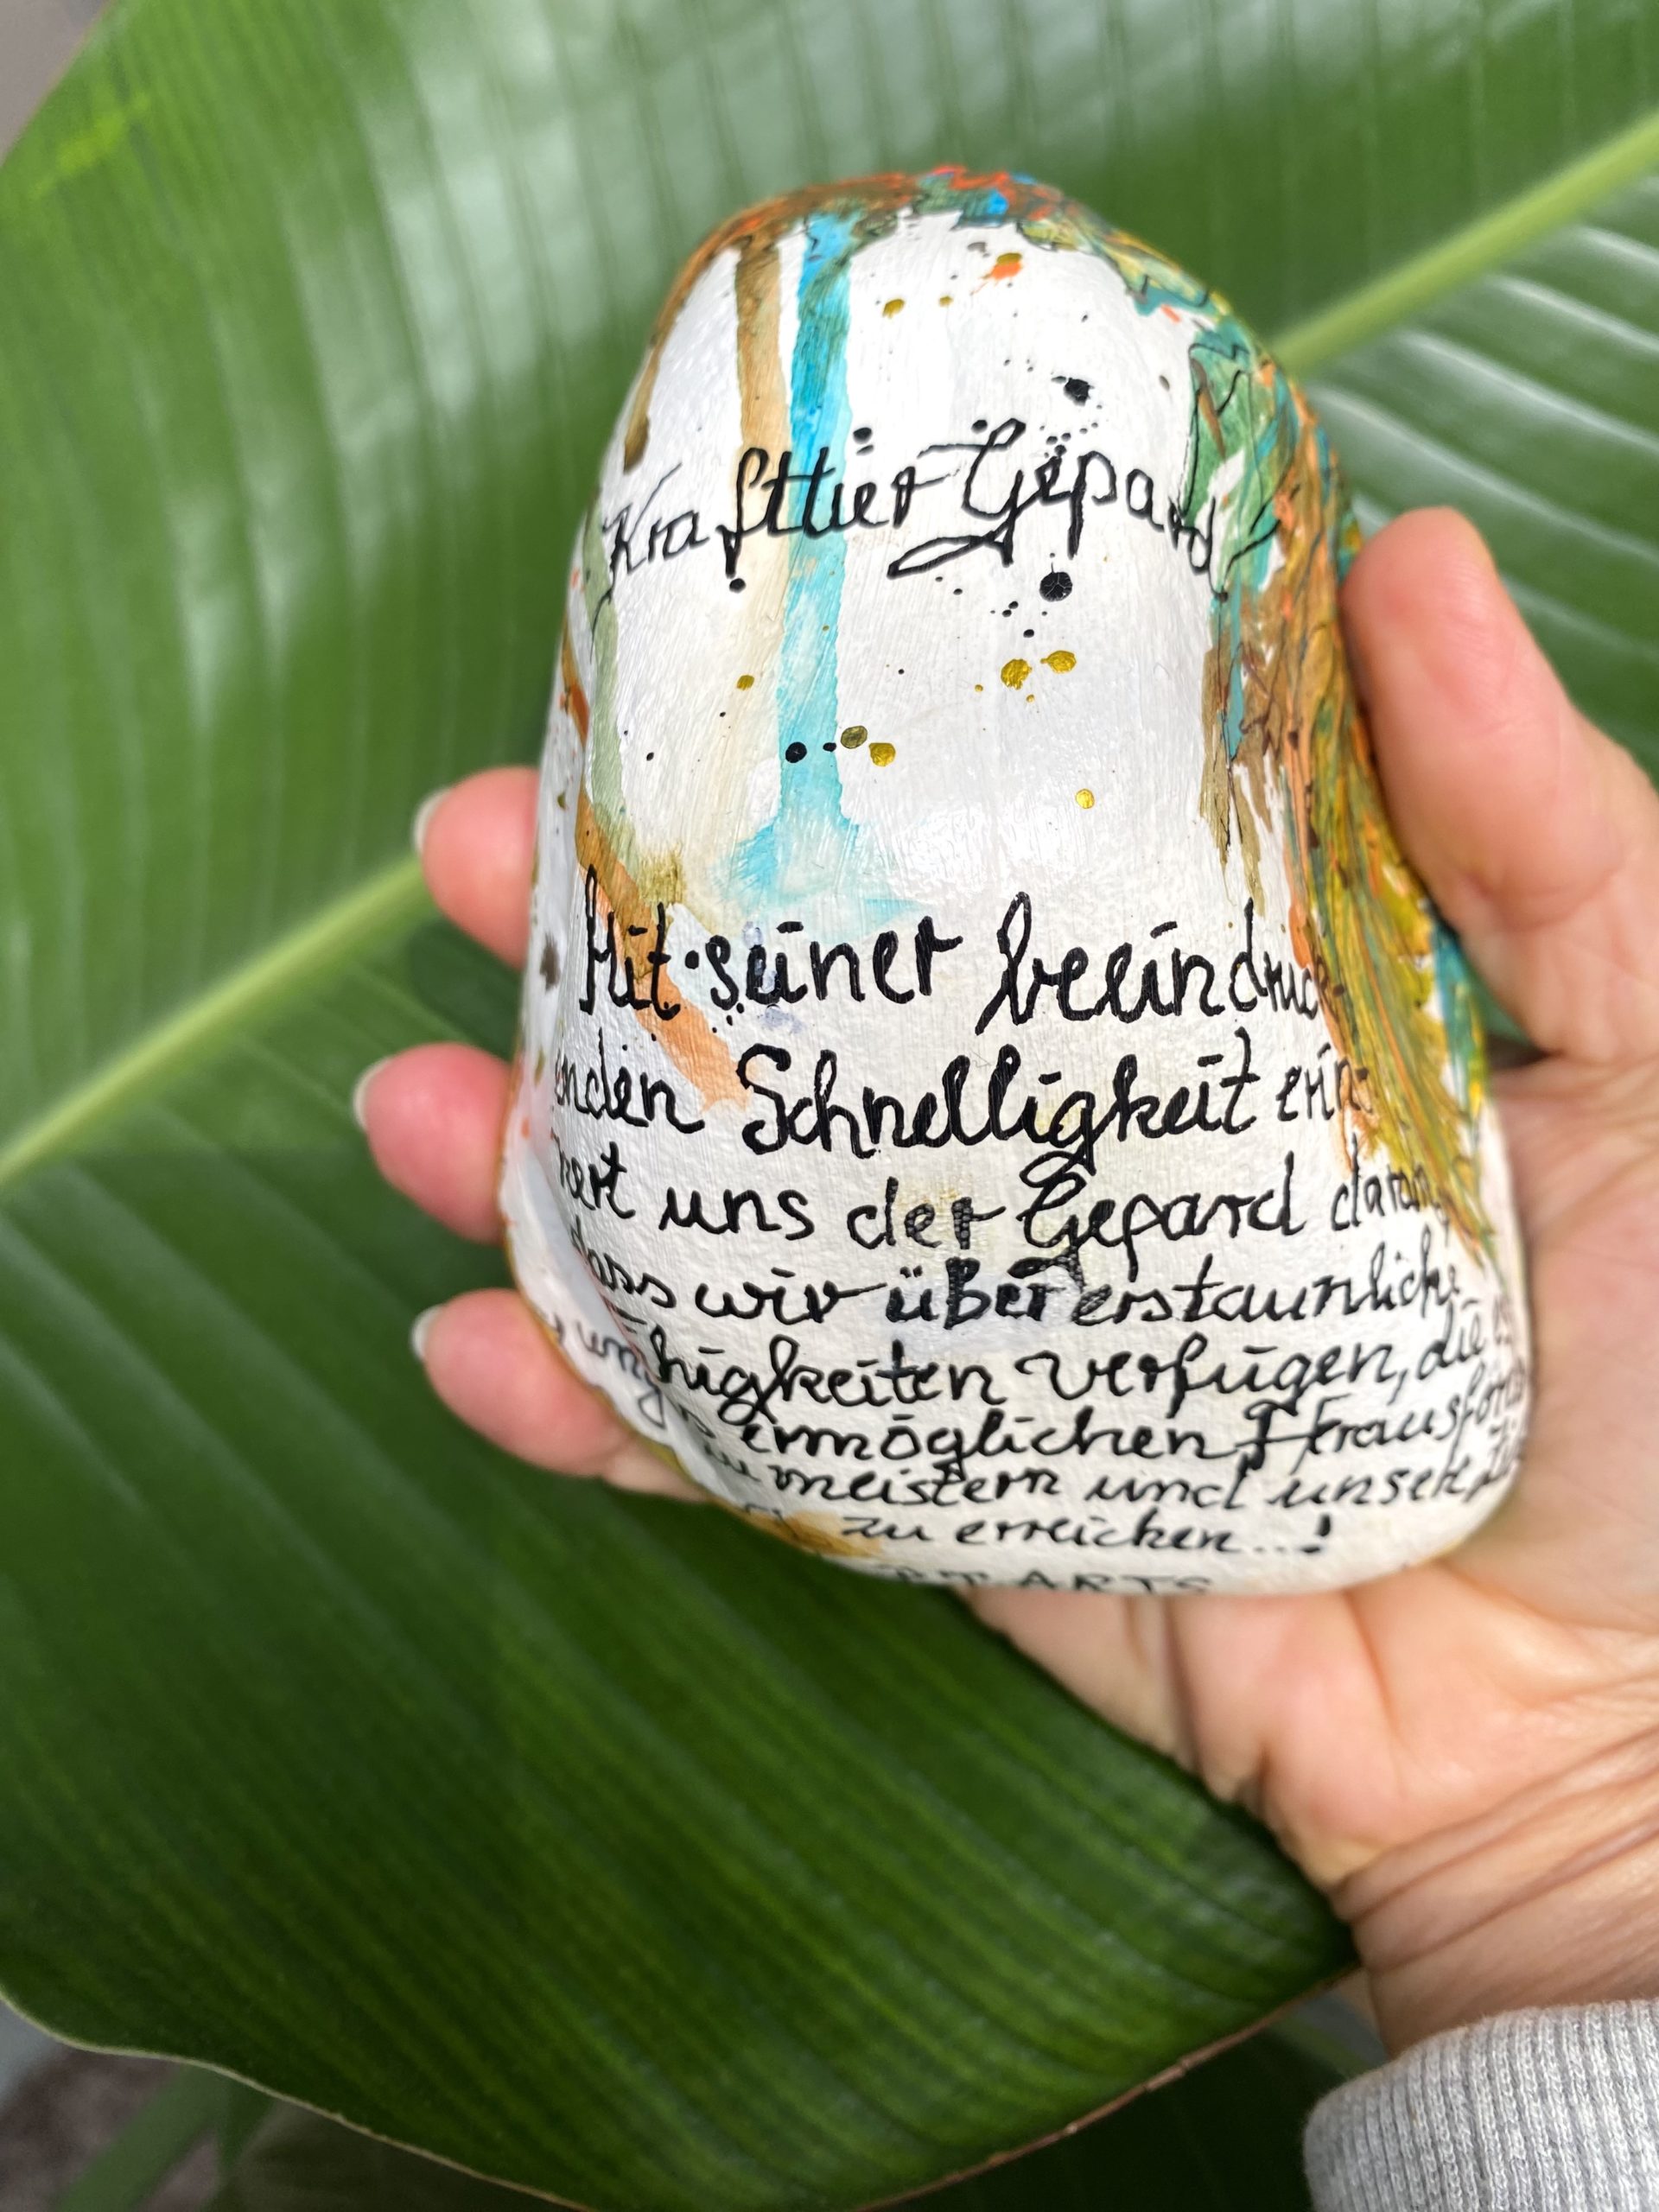 Krafttier Gepard
Mit seiner beeindruck
enden Schnelligkeit erin-
nert uns der Gepard daran,
dass wir über erstaunliche
higkeiten verfügen, die es
ermöglichen Herausford
zu meistern und unsere
zu erreichen...!
ARTS